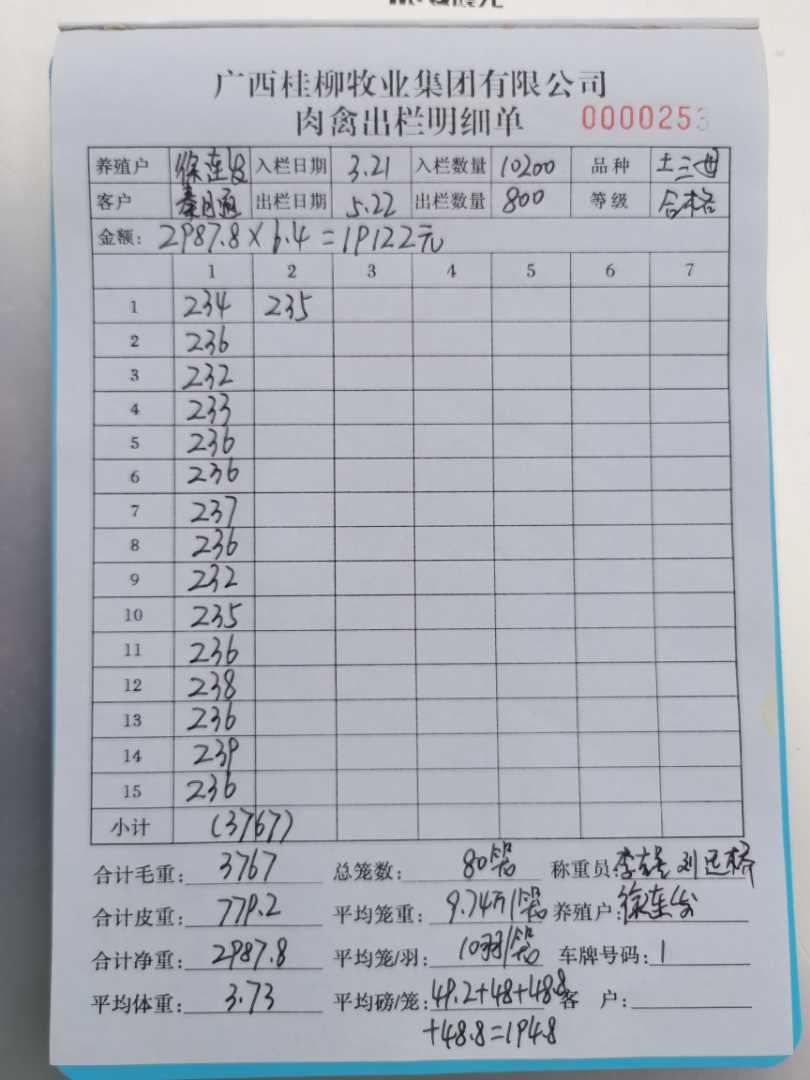 广西桂柳牧业集团有限公司
肉禽出栏明细单 0000253
养殖户 徐连发 入栏日期 3.21 入栏数量 10200 品种 土三母
客户 秦日通 出栏日期 5.22 出栏数量 800 等级 合格
金额: 2987.8×6.4=19122元
1 2 3 4 5 6 7
1 234 235
2 236
3 232
4 233
5 236
6 236
7 237
8 236
9 232
10 235
11 236
12 238
13 236
14 239
15 236
小计 (3767)
合计毛重: 3767 总笼数: 80笼 称重员: 刘迅桥
合计皮重: 779.2 平均笼重: 9.74斤/笼 养殖户: 徐连发
合计净重: 2987.8 平均笼/羽: 10羽/笼 车牌号码: 1
平均体重: 3.73 平均磅/笼: 49.2+48+48.8 客 户:
+48.8=194.8